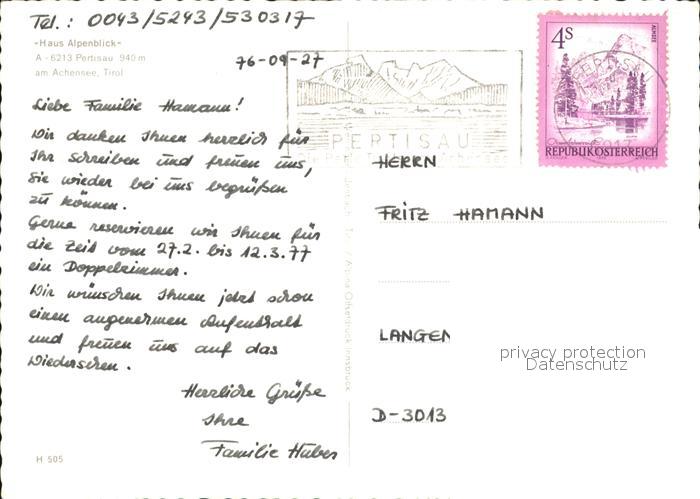 Tel.: 0043/5243/530317
-Haus Alpenblick-
A-6213 Pertisau 940m
am Achensee, Tirol
76-09-27
Liebe Familie Hamann!
Wir danken Ihnen herzlich für
Ihr Schreiben und freuen uns,
Sie wieder bei uns begrüßen
zu können.
Gerne reservieren wir Ihnen für
die Zeit vom 27.2. bis 12.3.77
ein Doppelzimmer.
Wir wünschen Ihnen jetzt schon
einen angenehmen Aufenthalt
und freuen uns auf das
Wiedersehen.
Herzliche Grüße
Ihre
Familie Huber
H 505
PERTISAU
4S
ALMSEE
PERTISAU
REPUBLIK ÖSTERREICH
HERRN
FRITZ HAMANN
LANGEN
D-3013
privacy protection
Datenschutz